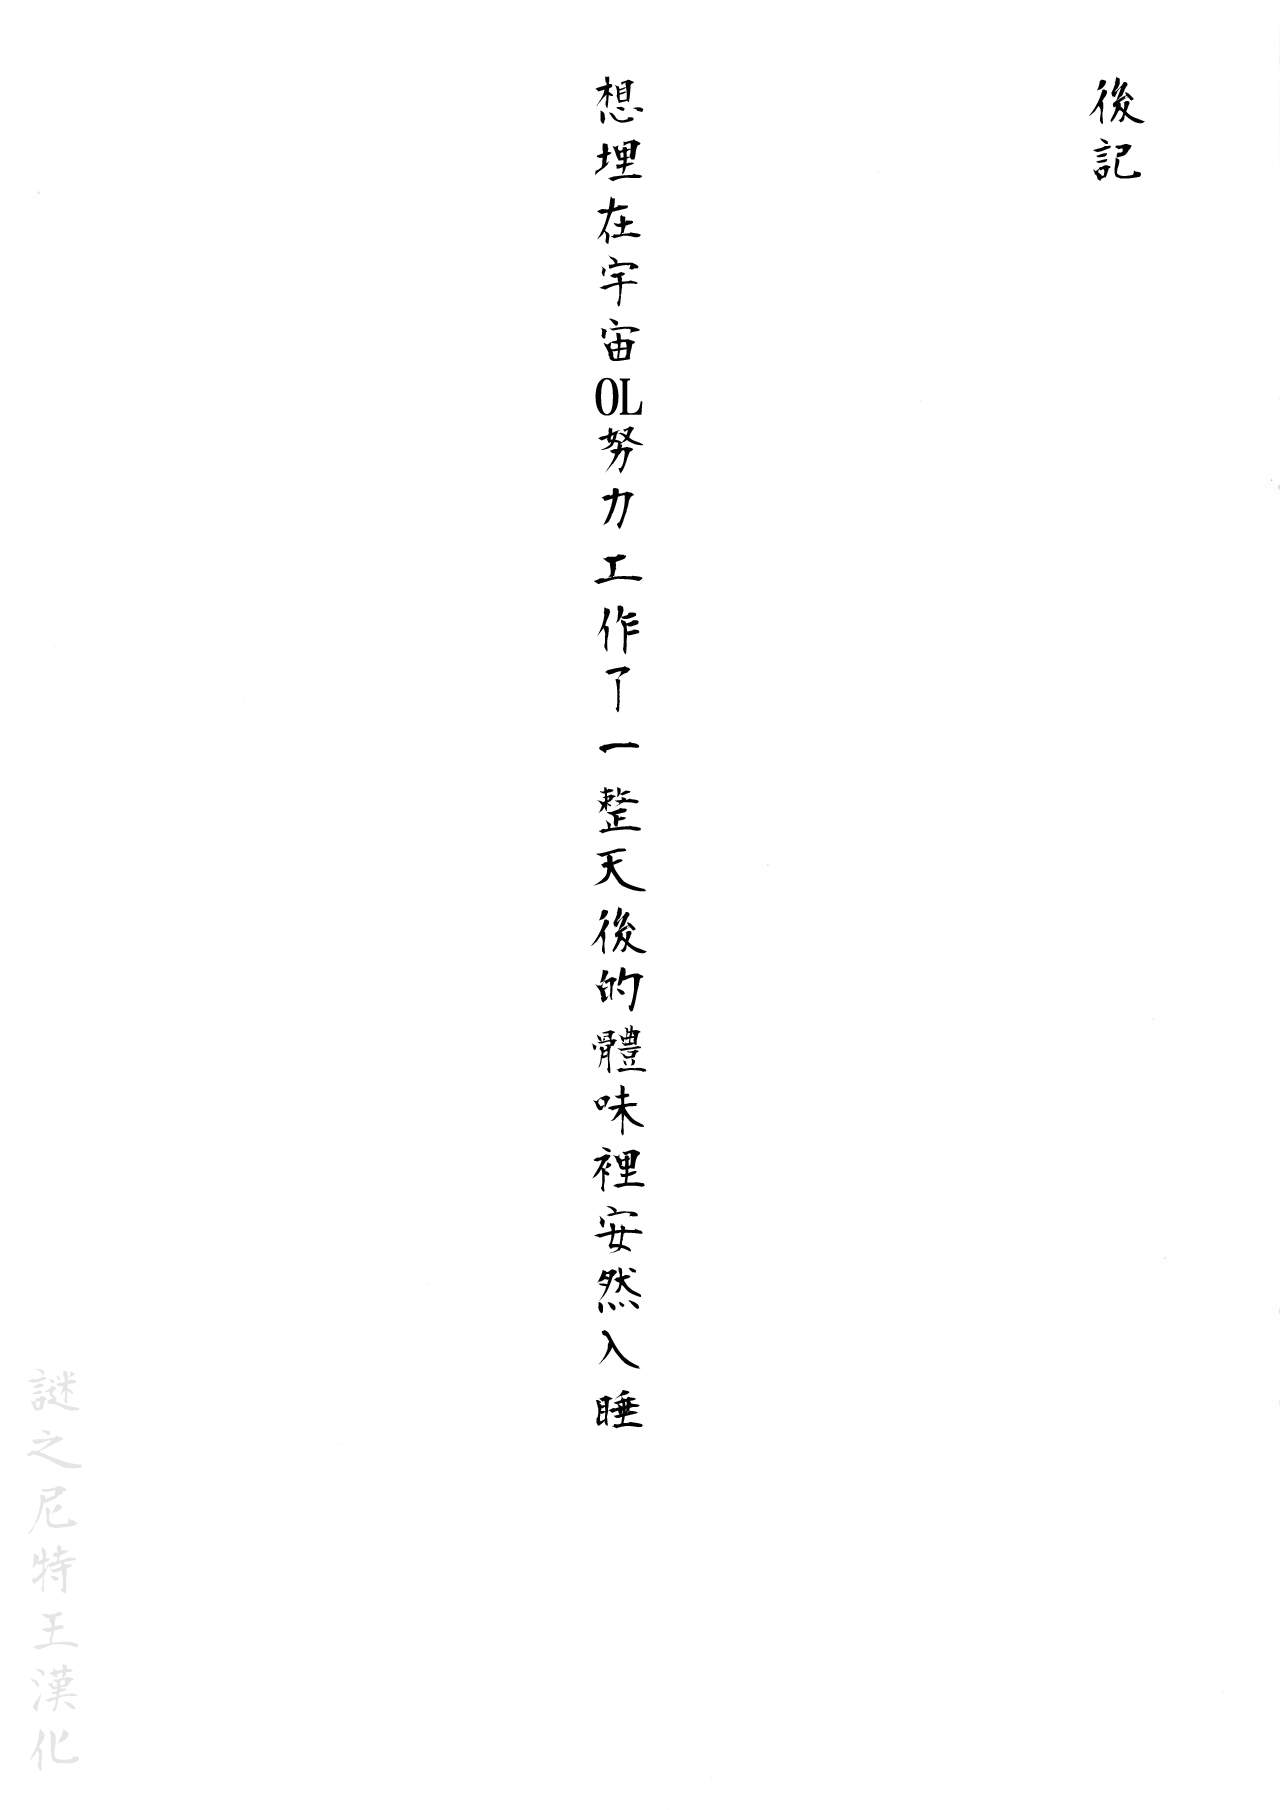 後記
想埋在宇宙OL努力工作了一整天後的體味裡安然入睡
謎之尼特王漢化